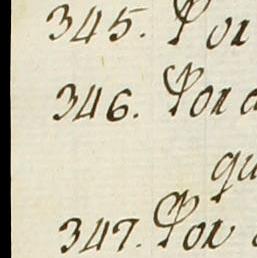 345. Por
346. Por a
qu
347. Por